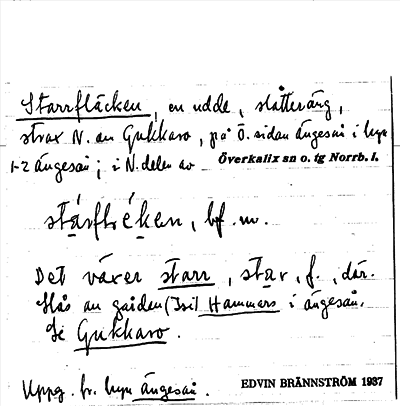 Starrfläcken, en udde, slåtteräng,
strax N. om Gukkaro, på Ö. sidan ängesån i byn
1-2 ängesån; i N. delen av Överkalix sn o. tg Norrb. l.
stárfléken, bf. m.
Det växer starr, star, f., där.
Slås au gården (Isi) Hammars i ängesån.
Se Gukkaro.
Uppg. fr. byn ängesån. EDVIN BRÄNNSTRÖM 1937